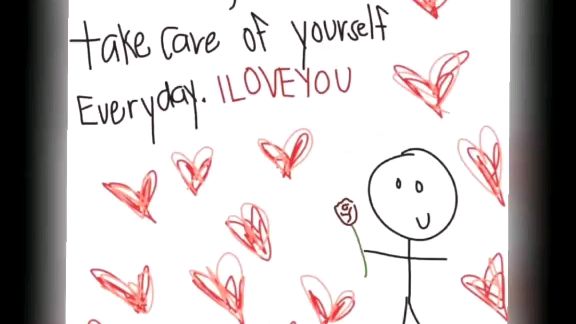 take care of yourself
Everyday. I LOVE YOU